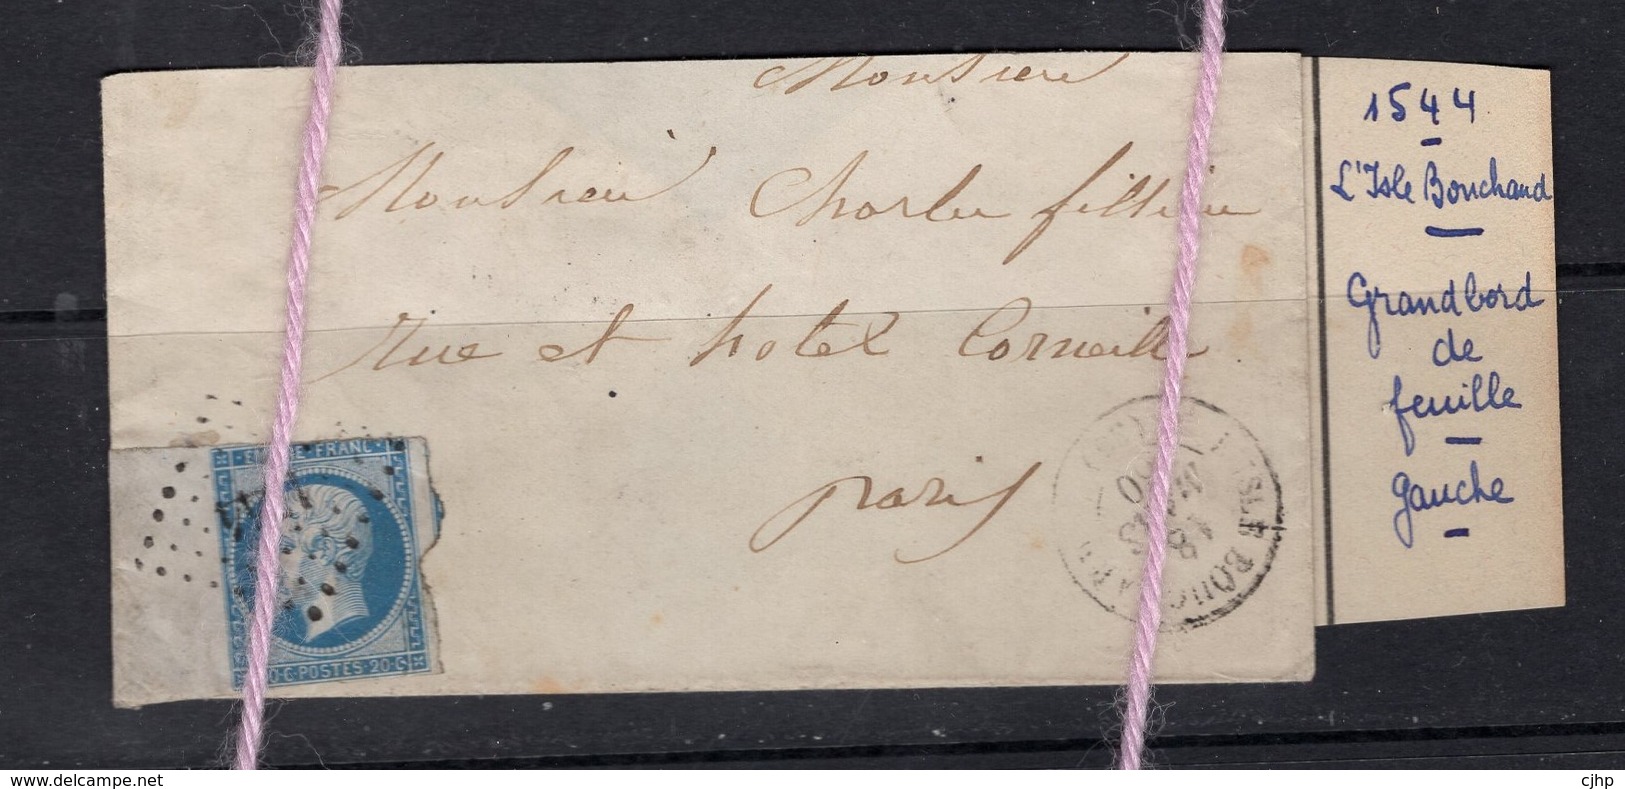 Monsieur
Monsieur Charles
Rue et hotel Corneille
paris
EMPIRE FRANC
20·C·POSTES·20·C
18
60
ISLE BOUCHARD
1544
L'Isle Bouchard
Grand bord
de
feuille
gauche
www.delcampe.net
cjhp